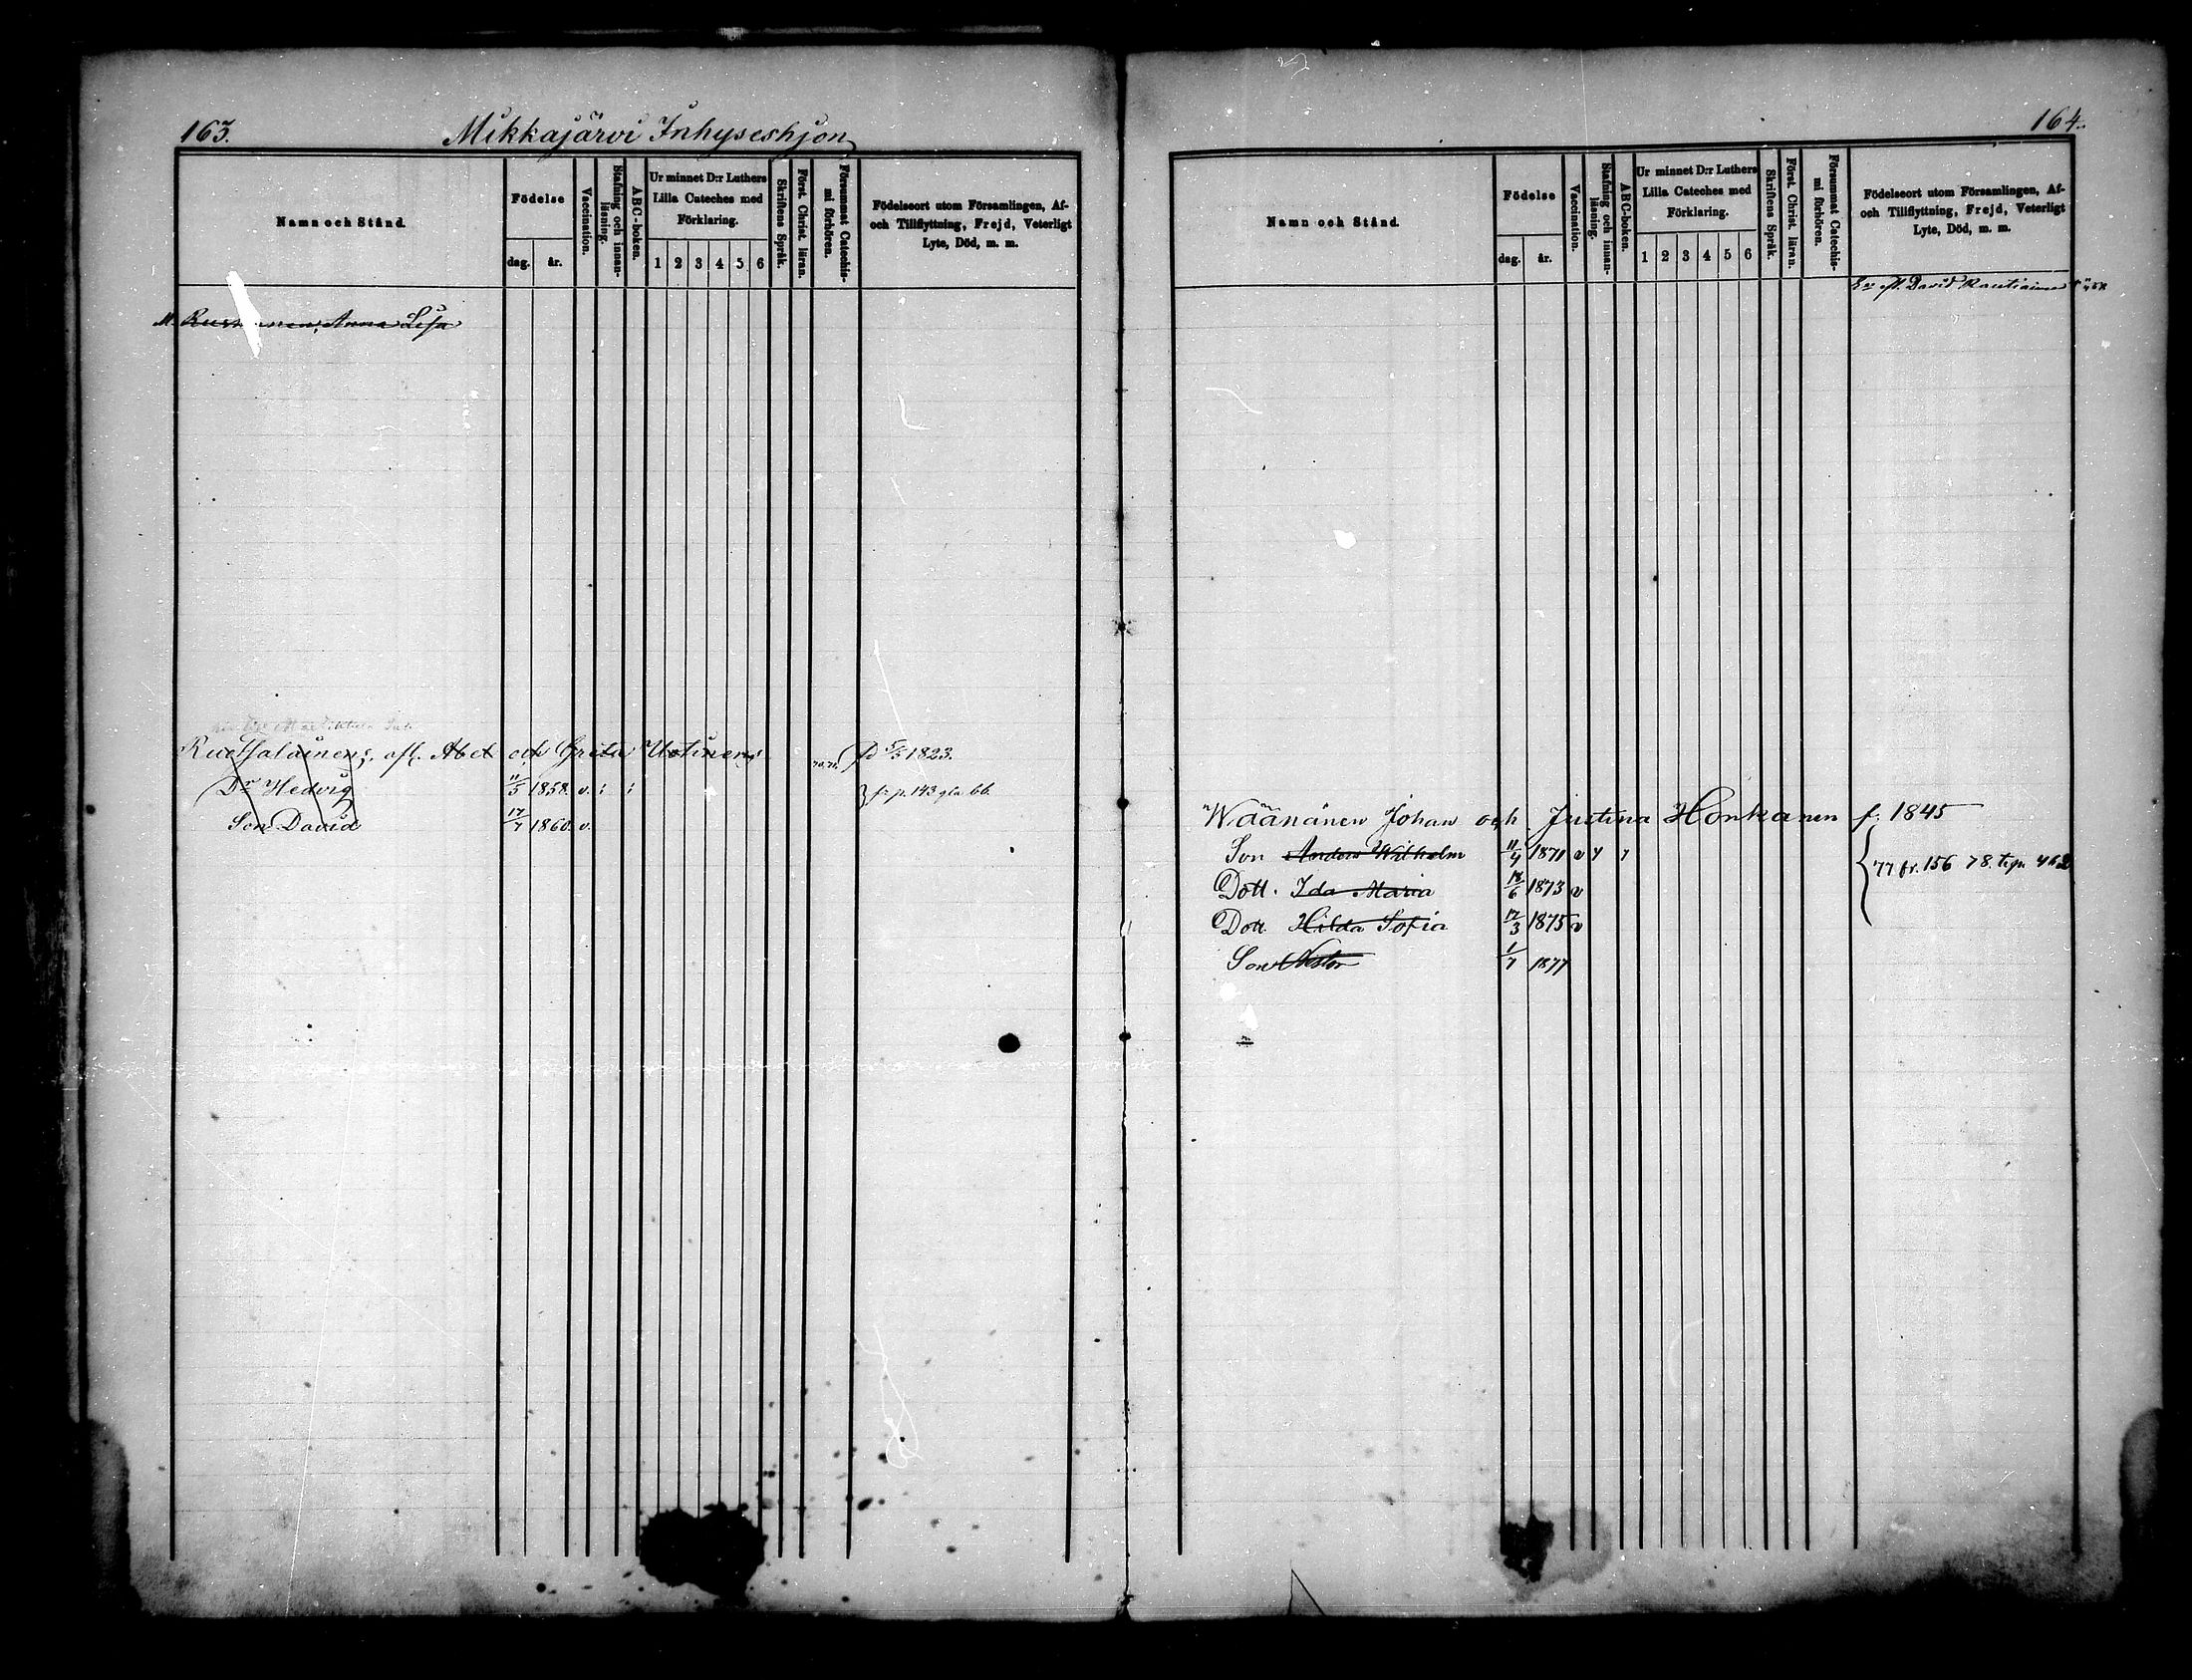 163.
Mikkajärvi Inhyseshjon
Namn och Stånd.
Födelse
dag.
år.
Vaccination.
Stafning och innanläsning.
ABC-boken.
Ur minnet D:r Luthers Lilla Cateches med Förklaring.
1 2 3 4 5 6
Skriftens Språk.
Först. Christ. läran.
Försummat Catechismi förhören.
Födelseort utom Församlingen, Af- och Tillflyttning, Frejd, Veterligt Lyte, Död, m. m.
Anna Lisa
Ruotsalainens, afl. Abel och Greta Uotinens 1823.
Dr Hedvig 11/5 1858. v.
fr p. 143 gla bb.
Son David 17/7 1860. v.
164.
Namn och Stånd.
Födelse
dag.
år.
Vaccination.
Stafning och innanläsning.
ABC-boken.
Ur minnet D:r Luthers Lilla Cateches med Förklaring.
1 2 3 4 5 6
Skriftens Språk.
Först. Christ. läran.
Försummat Catechismi förhören.
Födelseort utom Församlingen, Af- och Tillflyttning, Frejd, Veterligt Lyte, Död, m. m.
David Rautiainen
Wäänänen Johan och Justina Honkanen f. 1845
Son Anders Wilhelm 11/4 1871 v
77 fr. 156 78. t. pn 462
Dott. Ida Maria 18/6 1873 v
Dott Hilda Sofia 12/3 1875 v
Son Nestor 1/7 1877